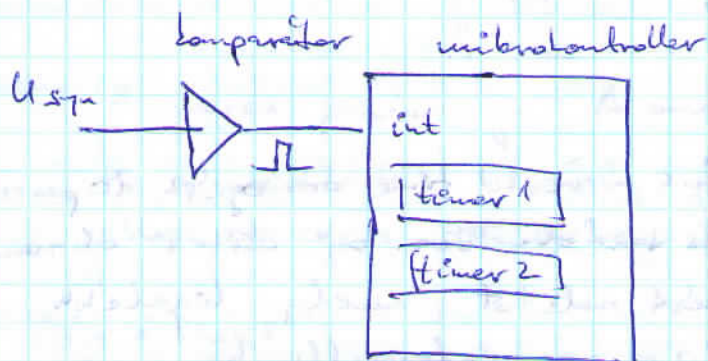 komparátor mikrokontroller
U syn
int
timer 1
timer 2